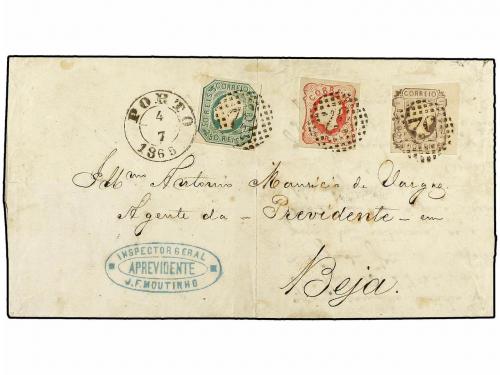 PORTO
4
7
1865
CORREIO
50 REIS
CORREIO
CORREIO
Illmo Antonio Mauricio de Vargas
Agente da - Previdente - em
Beja.
INSPECTOR GERAL
APREVIDENTE
J.F. MOUTINHO